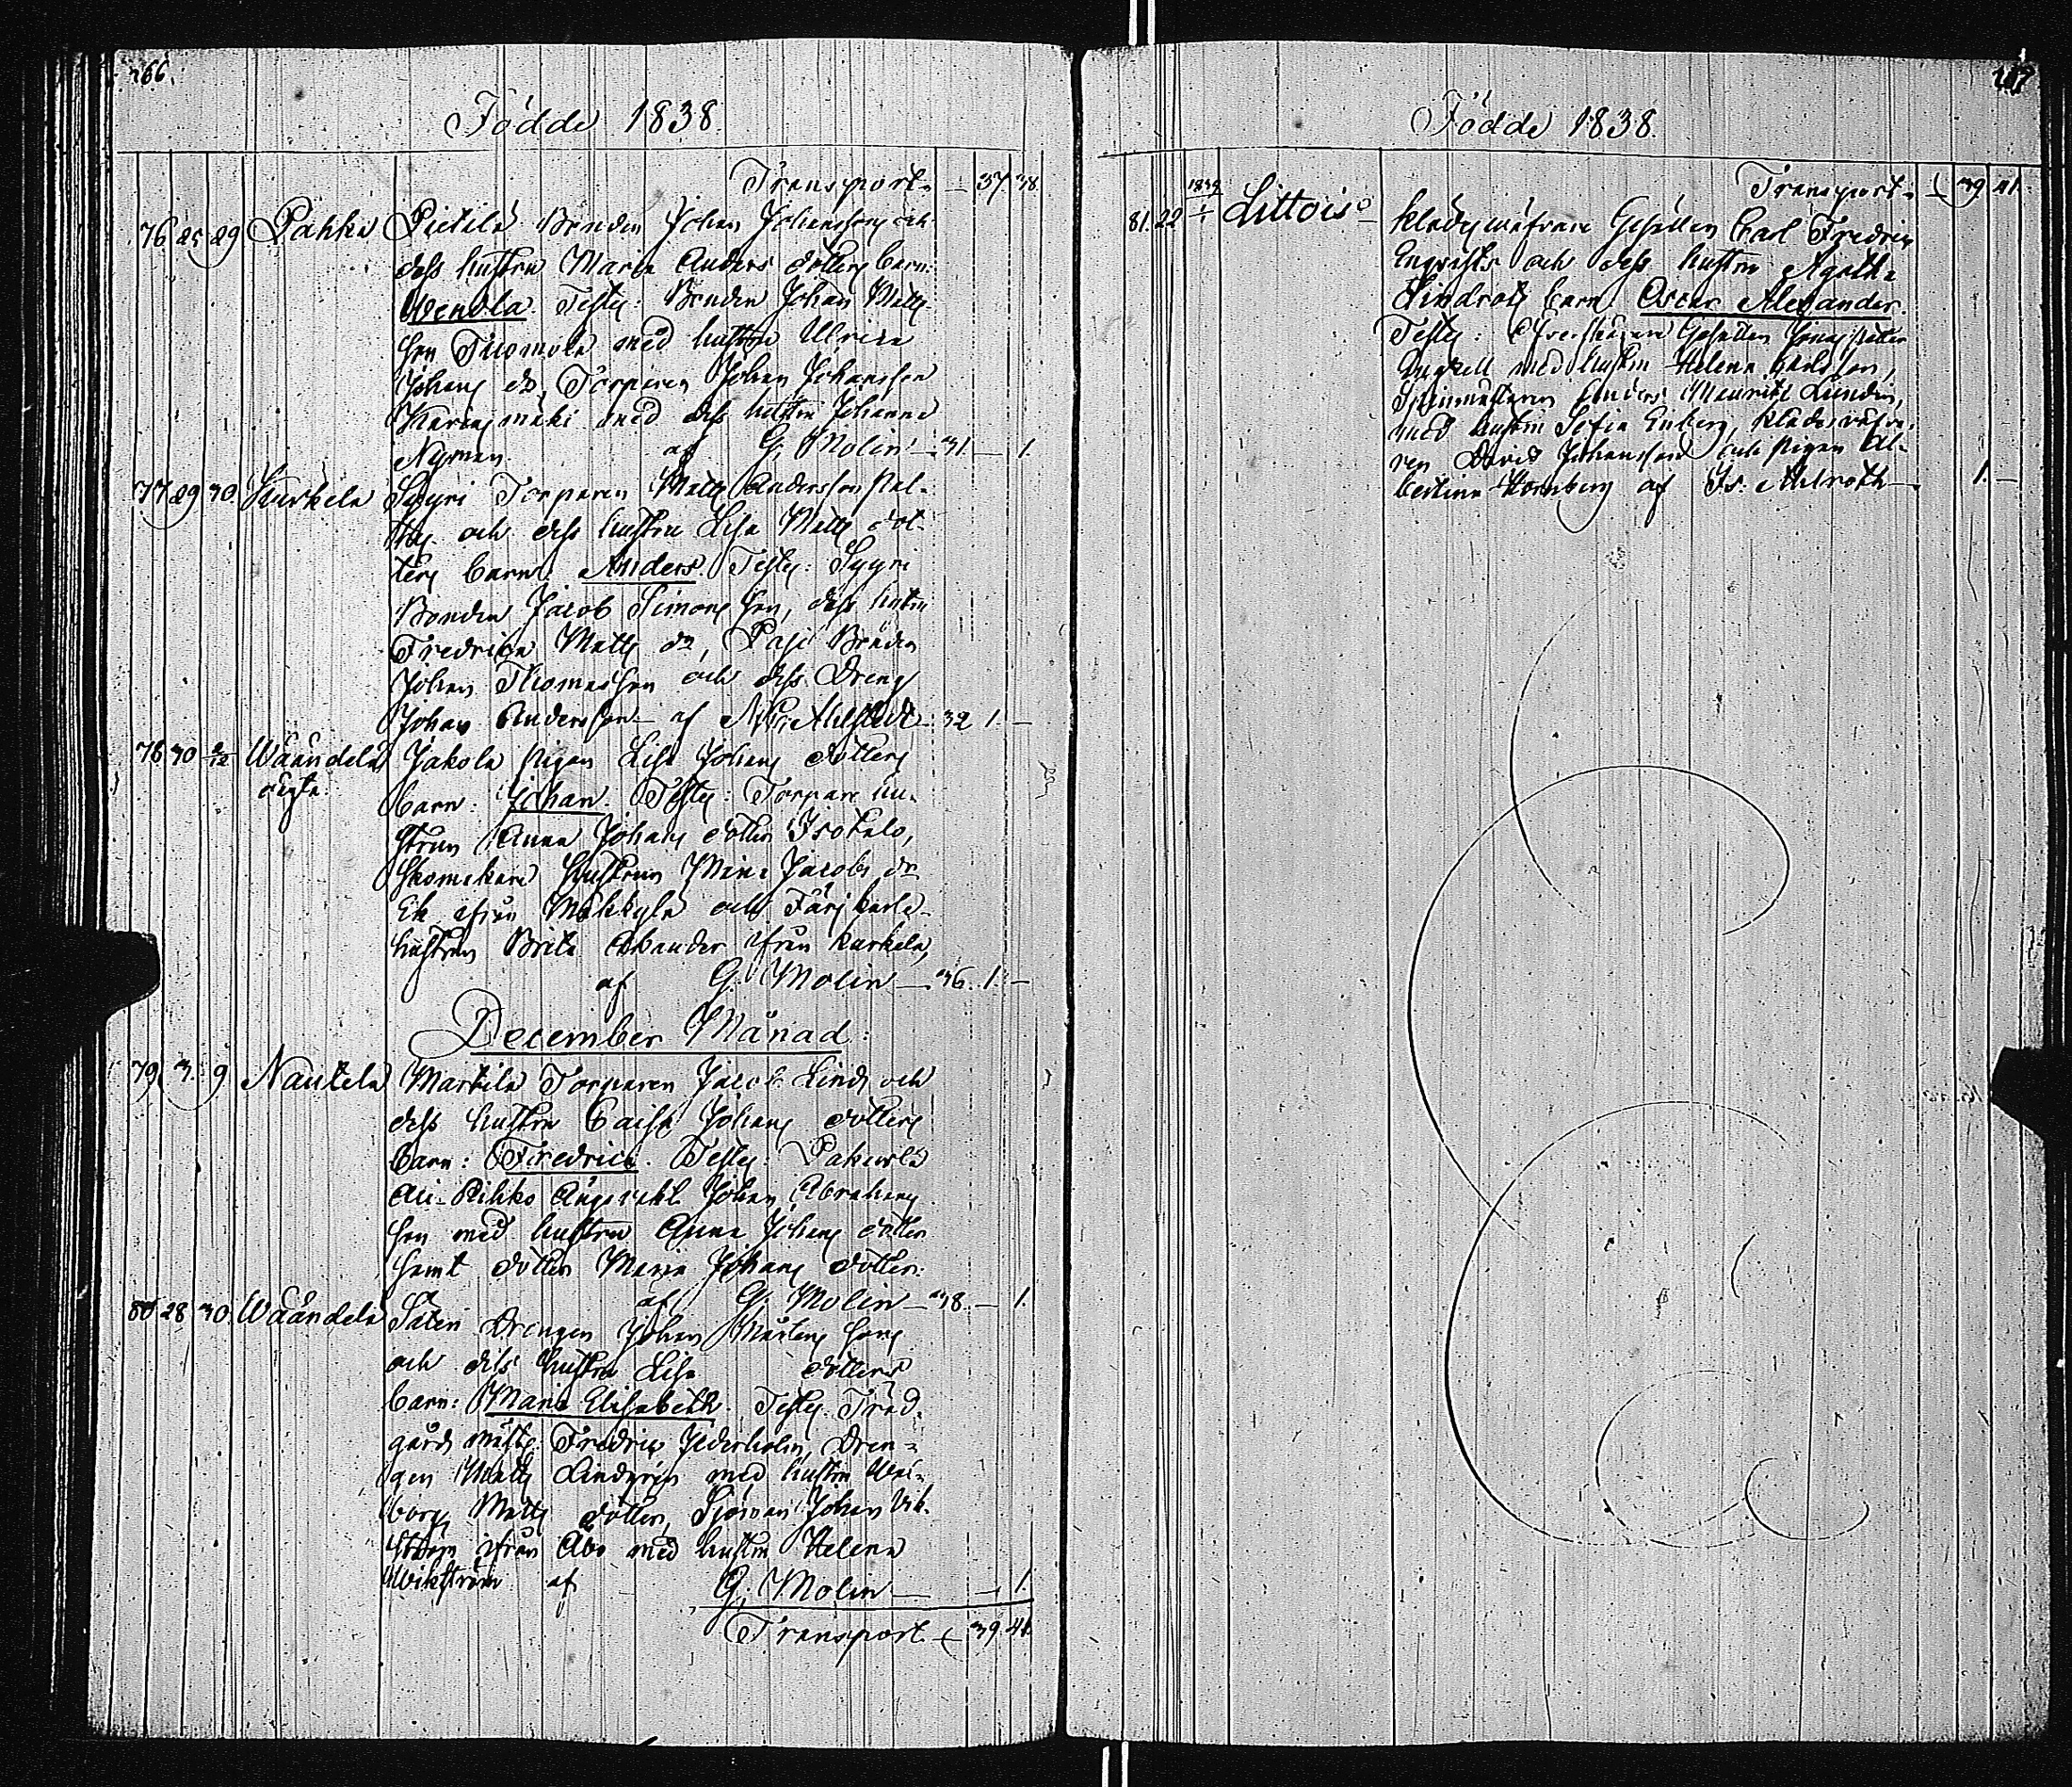 266.
Födde 1838.
Transport. — 37 38.
76 25 29 Pahka Pietilä Bonden Johan Johansson och
dess hustru Maria Anders dotters barn:
Wendla. Test: Bonden Johan Matts
son Tuomola med hustru Ulrica
Johans dr, Torparen Johan Johansson
mäki med dess hustru Johanna
Nyman. af G. Molin — 31. — 1.
77 29 30. Kurkela Syyri Torparen Matts Andersson
och dess hustru Lisa Matts dot-
ters barn: Anders. Test: Syyri
Bonden Jacob Simons son, dess hustru
Fredrica Matts dr, Pasi Bonden
Johan Thomasson och dess Dreng
Johan Andersson — af Ahlstedt — 32 1. —
78 30 2/12 Wäändelä
oägta:
Jakola Pigan Lisa Johans dotters
barn: Johan. Test: Torpare hu-
strun Anna Johans dotter Isotalo,
Skomakare Hustrun Mina Jacobs dr
Ek ifrån Mäkkylä och Färjkarls-
hustrun Brita ifrån Kurkela,
af G. Molin — 36. 1. —
December Månad:
79. 3. 9 Nautela Marttila Torparen Jacob Lind och
dess hustru Caisa Johans dotters
barn: Fredric. Test: Pakurla
Ali-Rihko Johan Abrahams
son med hustru Anna Johans dotter
samt dotter Maria Johans dotter:
af G. Molin — 38. — 1.
80 28 30. Wäändelä Säteri Drengen Johan Mårtens sons
och dess hustru Lisa dotters
barn: Maria Elisabeth. Test: Träd-
gårds mäst: Fredric Dren-
gen Matts Lindgren med hustru Wal-
borg Matts dotter, Sjöman Johan Vik-
ström ifrån Åbo med hustru Helena
Wikström af G. Molin — — 1.
Transport — 39 41.
267
Födde 1838.
Transport — 39 41.
81. 22 1839 1/1 Littois Klädeswäfvare Gesällen Carl Fredric
Engqvists och dess hustru Agatha
Lindroos barn Oscar Alexander.
Test: Gesällen Petter
med hustru Helena Karlsson,
Spinnmästaren Anders Maurits Lundin,
med hustru Sofia Enberg, Klädesväfva-
ren David Johansson och Pigan Al-
bertina Hornberg af Is: Ahlroth — 1. —